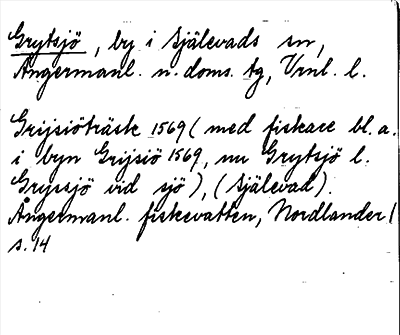 Grytsjö, by i Själevads sn,
Ångermanl. n. doms. tg, Vrnl. l.
Grijsiöträsk 1569 (med fiskare bl. a.
i byn Grijsiö 1569, nu Grytsjö l.
Gryssjö vid sjö), (Själevad).
Ångermanl. fiskevatten, Nordlander/
s. 14